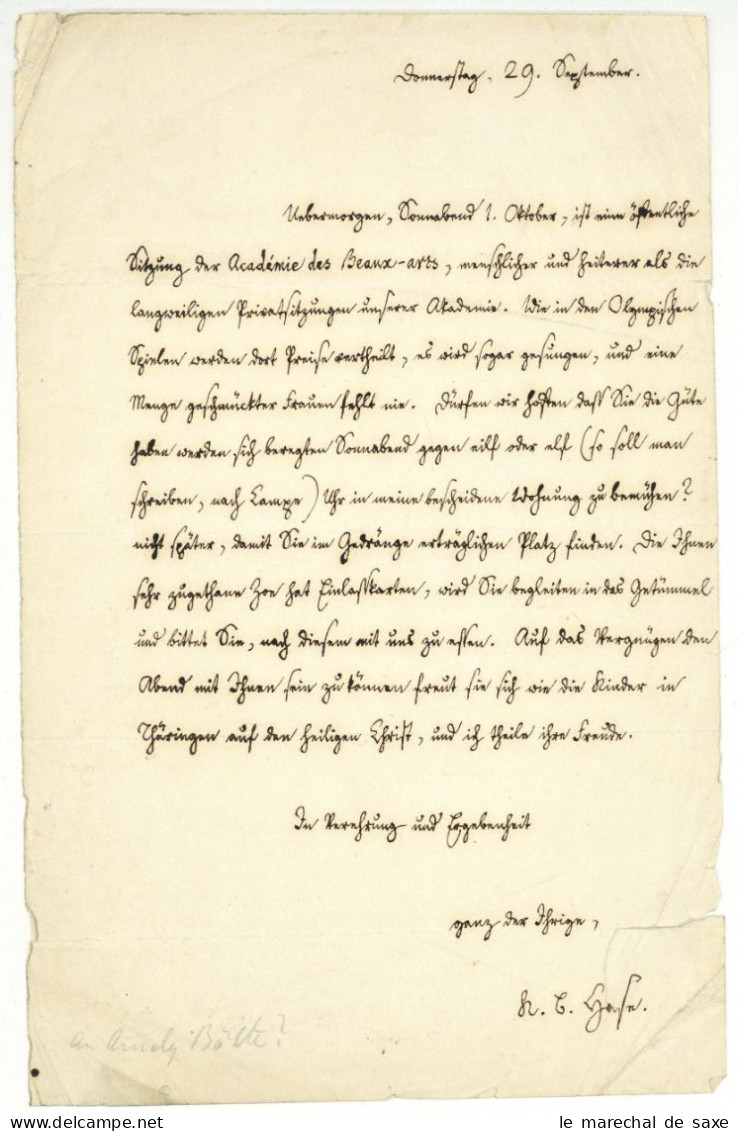 Donnerstag, 29. September.
Uebermorgen, Sonnabend 1. Oktober, ist eine öffentliche
Sitzung der Académie des Beaux-arts, menschlicher und heiterer als die
langweiligen Privatsitzungen unserer Akademie. Wie in den Olympischen
Spielen werden dort Preise vertheilt, es wird sogar gesungen, und eine
Menge geschmückter Frauen fehlt nie. Dürfen wir hoffen dass Sie die Güte
haben werden sich beregten Sonnabend gegen eilf oder elf (so soll man
schreiben, nach Campe) Uhr in meine bescheidene Wohnung zu bemühen?
nicht später, damit Sie im Gedränge erträglichen Platz finden. Die Ihnen
sehr zugethane Zoe hat Einlasskarten, wird Sie begleiten in das Getümmel
und bittet Sie, nach diesem mit uns zu essen. Auf das Vergnügen den
Abend mit Ihnen sein zu können freut sie sich wie die Kinder in
Thüringen auf den heiligen Christ, und ich theile ihre Freude.
In Verehrung und Ergebenheit
ganz der Ihrige,
K. B. Hase.
an Amely Bölte?
le marechal de saxe